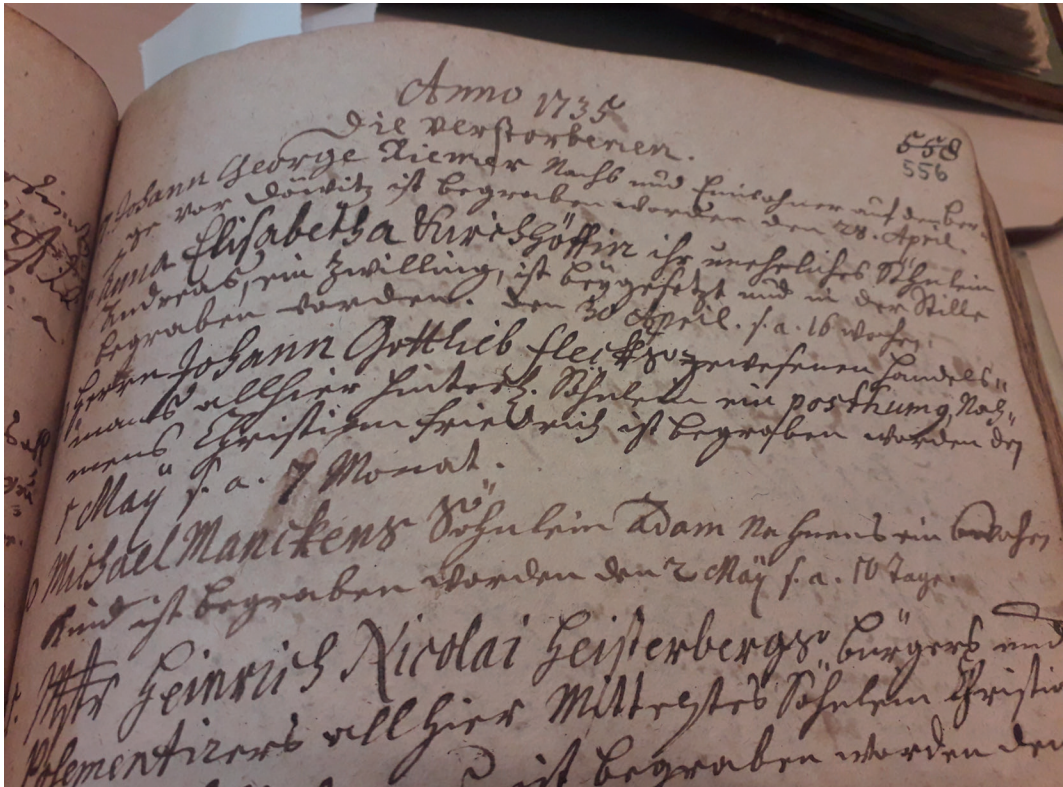 Anno 1735
Die Verstorbenen.
558
556
Johann George Riemer Nachb und Einwohner auf dem Ber-
ge vor Döwitz ist begraben worden den 28. April.
Anna Elisabetha ihr uneheliches Söhnlein
Andreas, ein Zwilling, ist beygesetzt und in der Stille
begraben worden. den 30 April. s. a. 16 wochen.
Herrn Johann Gottlieb Flecks gewesenen Handels-
manns allhier hinterl. Söhnlein ein posthumg, Nah-
mens Christian Friedrich ist begraben worden den
1 May s. a. 7 Monat.
Michael Manckens Söhnlein Adam Nahmens ein
Kind ist begraben worden den 2 May s. a. 10 Tage.
Mstr Heinrich Nicolai Heisterbergs bürgers und
allhier Mittelstes Söhnlein
ist begraben worden den